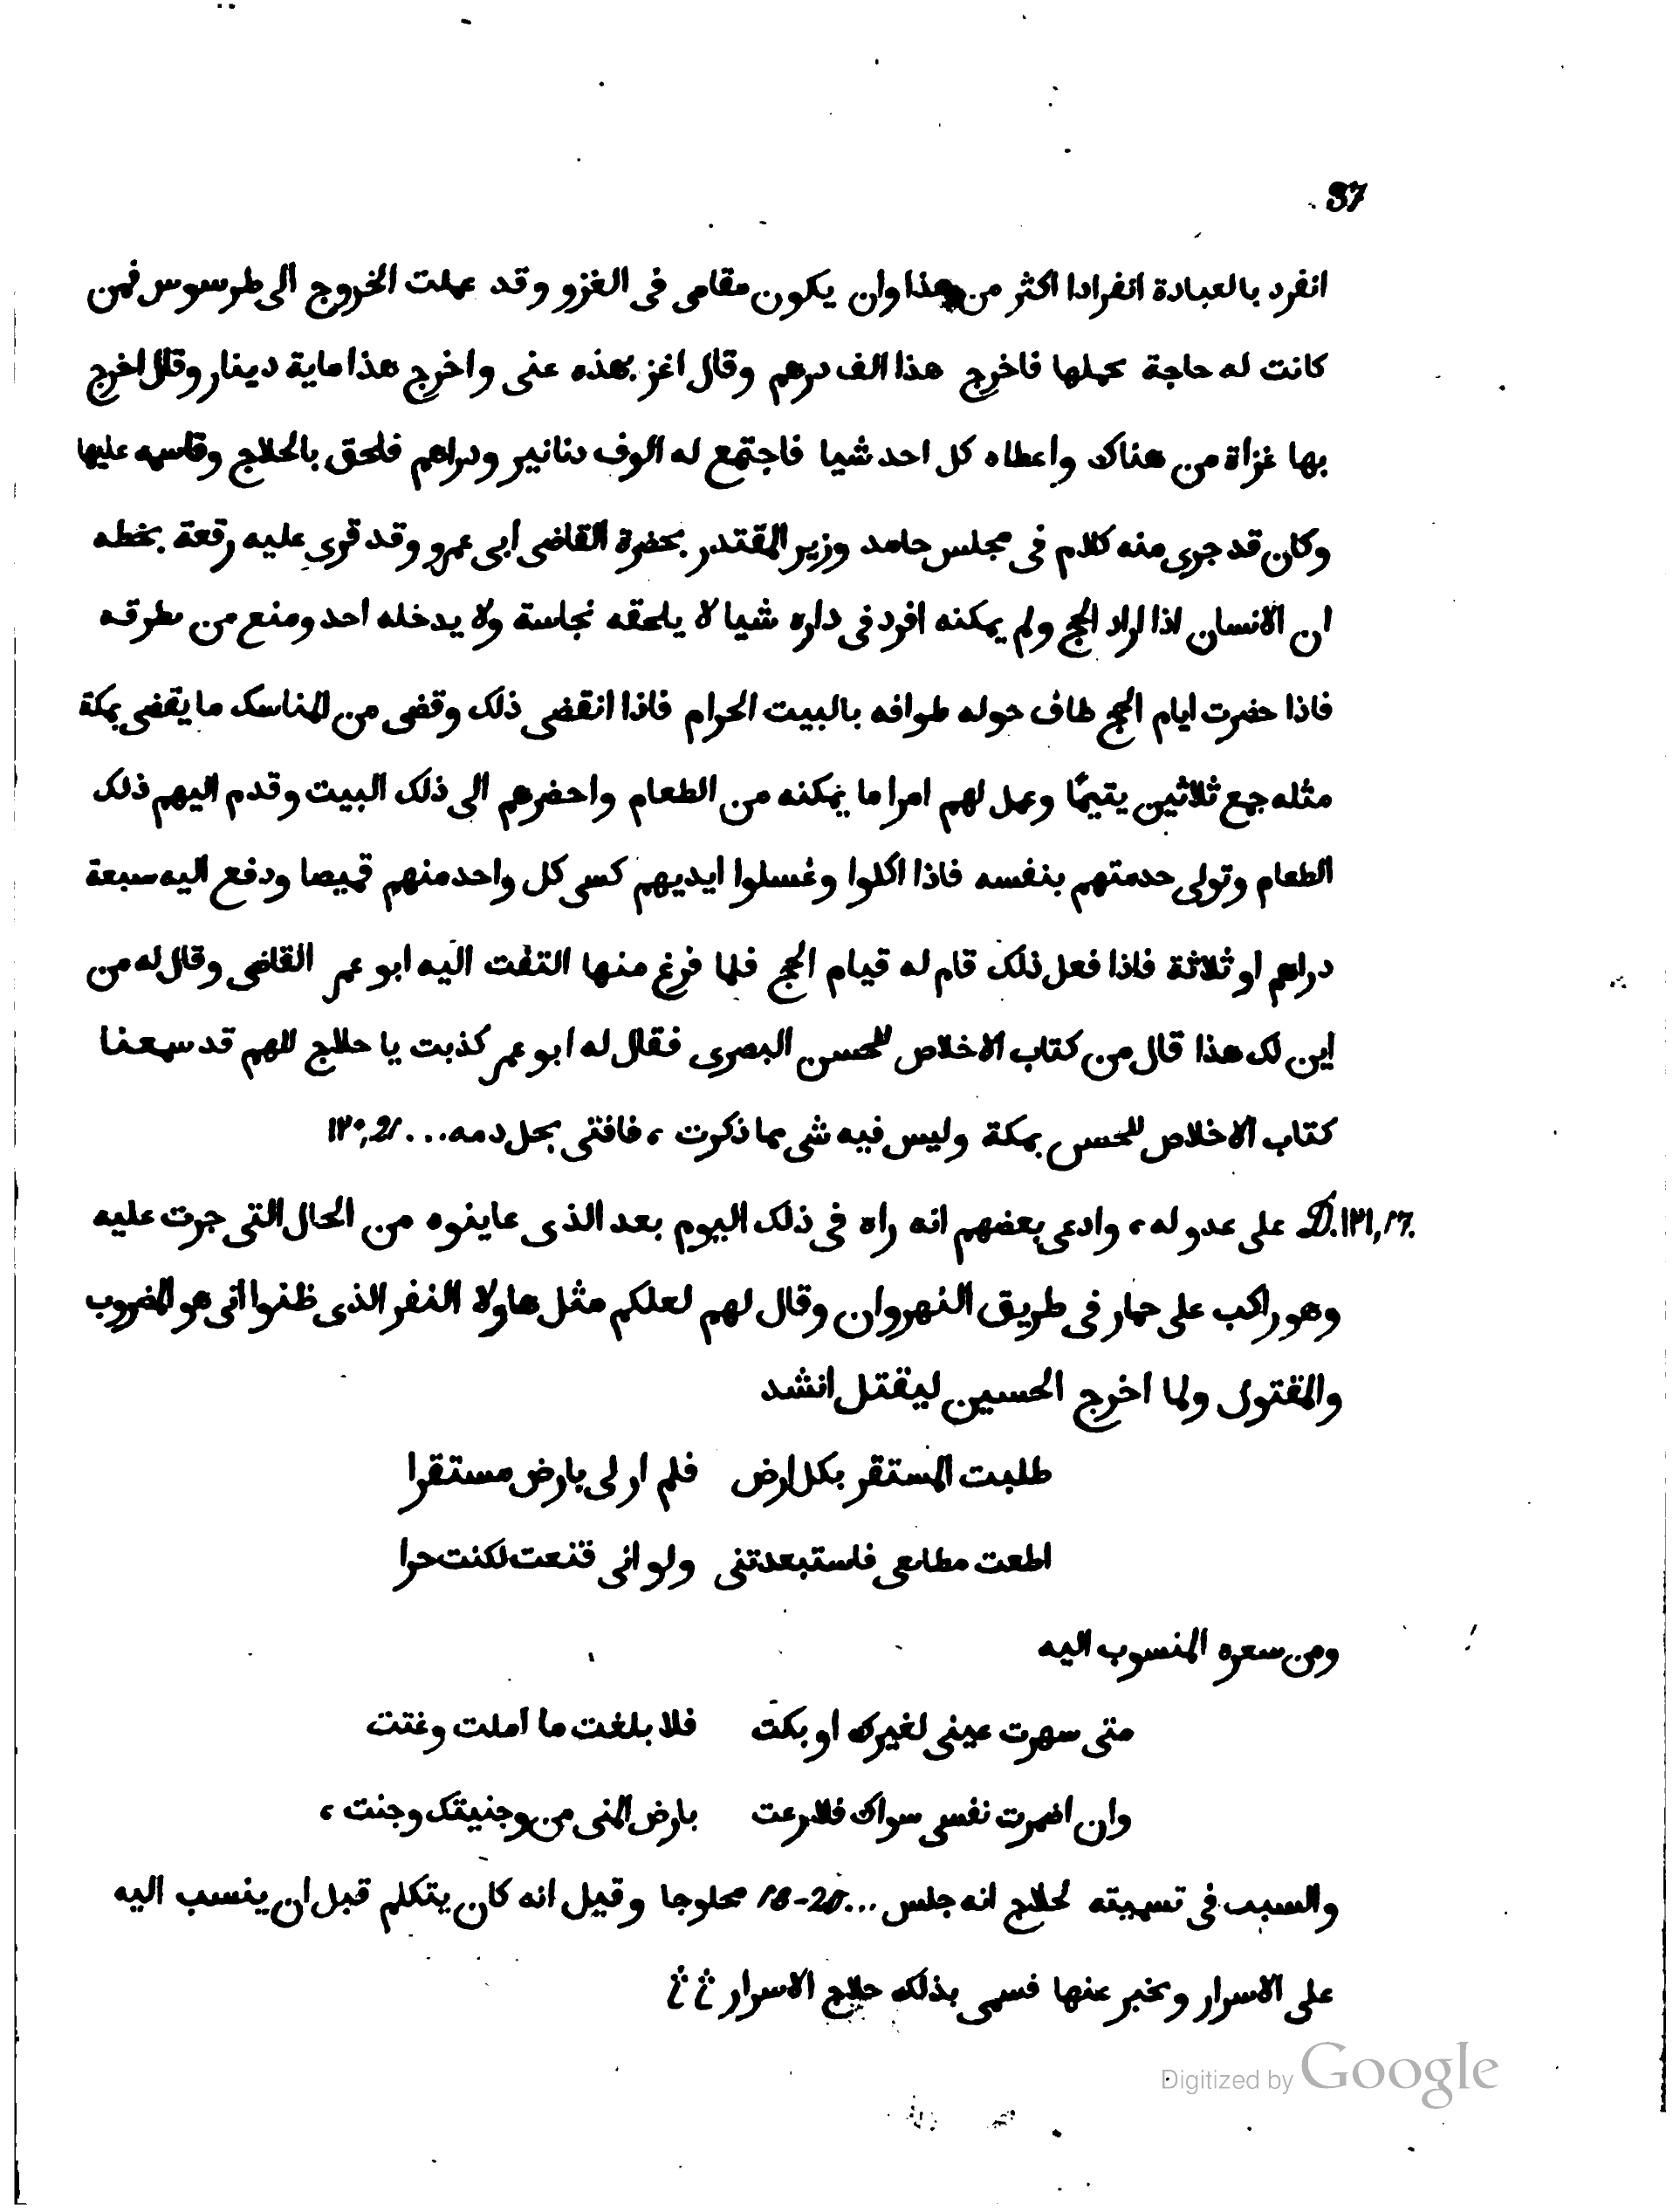 37
انفرد بالعبادة انفرادا اكثر من هذا وان يكون مقامى فى الغزو وقد عملت الخروج الى طرسوس فمن
كانت له حاجة تحملها فاخرج هذا الف درهم وقال اغز بهذه عنى واخرج هذا ماية دينار وقال اخرج
بها غزاة من هناك واعطاه كل احد شيا فاجتمع له الوف دنانير ودراهم فلحق بالحلاج وقاسمه عليها
وكان قد جرى منه كلام فى مجلس حامد وزير المقتدر بحضرة القاضى ابى عمرو وقد قرى عليه رقعة بخطه
ان الانسان اذا اراد الحج ولم يمكنه افرد فى داره شيا لا يلحقه نجاسة ولا يدخله احد ومنع من تطرقه
فاذا حضرت ايام الحج طاف حوله طوافه بالبيت الحرام فاذا انقضى ذلك وقضى من المناسك ما يقضى بمكة
مثله جمع ثلاثين يتيمًا وعمل لهم امرا ما يمكنه من الطعام واحضرهم الى ذلك البيت وقدم اليهم ذلك
الطعام وتولى خدمتهم بنفسه فاذا اكلوا وغسلوا ايديهم كسى كل واحد منهم قميصا ودفع اليه سبعة
دراهم او ثلاثة فاذا فعل ذلك قام له قيام الحج فلما فرغ منها التفت اليه ابو عمر القاضى وقال له من
اين لك هذا قال من كتاب الاخلاص للحسن البصرى فقال له ابو عمر كذبت يا حلاج اللهم قد سمعنا
كتاب الاخلاص للحسن بمكة وليس فيه شى مما ذكرت ، فافتى بحل دمه... ١٣٠,21
D.١٣١,17. على عدو له ، وادعى بعضهم انه راه فى ذلك اليوم بعد الذى عاينوه من الحال التى جرت عليه
وهو راكب على حمار فى طريق النهروان وقال لهم لعلكم مثل هاولا النفر الذى ظنوا انى هو المضروب
والمقتول ولما اخرج الحسين ليقتل انشد
طلبت المستقر بكل ارض فلم ار لى بارض مستقرا
اطعت مطامعى فاستبعدتنى ولو انى قنعت لكنت حرا
ومن سعره المنسوب اليه
متى سهرت عينى لغيرك او بكت فلا بلغت ما املت وغتت
وان اضمرت نفسى سواك فلا رعت بارض المنى من وجنيتك وجنت ،
والسبب فى تسميته لحلاج انه جلس ...18-20 محلوجا وقيل انه كان يتكلم قبل ان ينسب اليه
على الاسرار ويخبر عنها فسمى بذلك حلاج الاسرار
Digitized by Google